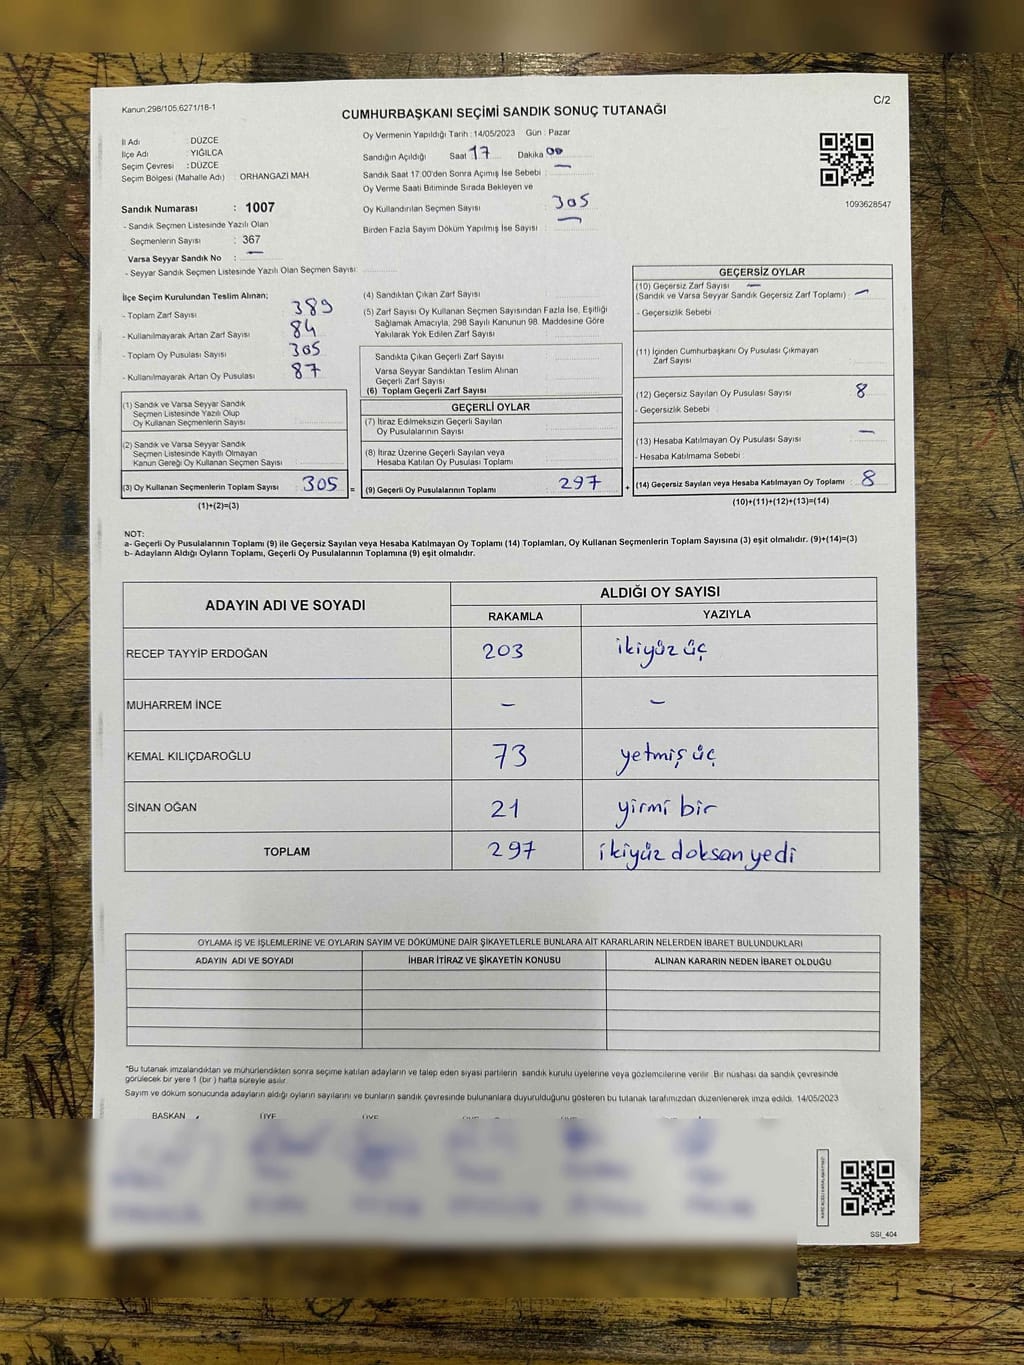 Kanun:298/105.6271/18-1
C/2
CUMHURBAŞKANI SEÇİMİ SANDIK SONUÇ TUTANAĞI
İl Adı : DÜZCE
İlçe Adı : YIĞILCA
Seçim Çevresi : DÜZCE
Seçim Bölgesi (Mahalle Adı) : ORHANGAZİ MAH.
Sandık Numarası : 1007
- Sandık Seçmen Listesinde Yazılı Olan
Seçmenlerin Sayısı : 367
Varsa Seyyar Sandık No : —
- Seyyar Sandık Seçmen Listesinde Yazılı Olan Seçmen Sayısı:
Oy Vermenin Yapıldığı Tarih : 14/05/2023 Gün : Pazar
Sandığın Açıldığı Saat 17 Dakika 00
Sandık Saat 17:00'den Sonra Açımış İse Sebebi : —
Oy Verme Saati Bitiminde Sırada Bekleyen ve
Oy Kullandırılan Seçmen Sayısı : 305
Birden Fazla Sayım Döküm Yapılmış İse Sayısı : —
1093628547
İlçe Seçim Kurulundan Teslim Alınan;
- Toplam Zarf Sayısı : 389
- Kullanılmayarak Artan Zarf Sayısı : 84
- Toplam Oy Pusulası Sayısı : 305
- Kullanılmayarak Artan Oy Pusulası : 87
(1) Sandık ve Varsa Seyyar Sandık
Seçmen Listesinde Yazılı Olup
Oy Kullanan Seçmenlerin Sayısı :
(2) Sandık ve Varsa Seyyar Sandık
Seçmen Listesinde Kayıtlı Olmayan
Kanun Gereği Oy Kullanan Seçmen Sayısı :
(3) Oy Kullanan Seçmenlerin Toplam Sayısı : 305 =
(1)+(2)=(3)
(4) Sandıktan Çıkan Zarf Sayısı :
(5) Zarf Sayısı Oy Kullanan Seçmen Sayısından Fazla İse, Eşitliği
Sağlamak Amacıyla, 298 Sayılı Kanunun 98. Maddesine Göre
Yakılarak Yok Edilen Zarf Sayısı :
Sandıkta Çıkan Geçerli Zarf Sayısı :
Varsa Seyyar Sandıktan Teslim Alınan
Geçerli Zarf Sayısı :
(6) Toplam Geçerli Zarf Sayısı :
GEÇERLİ OYLAR
(7) İtiraz Edilmeksizin Geçerli Sayılan
Oy Pusulalarının Sayısı :
(8) İtiraz Üzerine Geçerli Sayılan veya
Hesaba Katılan Oy Pusulası Toplamı :
(9) Geçerli Oy Pusulalarının Toplamı : 297 +
GEÇERSİZ OYLAR
(10) Geçersiz Zarf Sayısı —
(Sandık ve Varsa Seyyar Sandık Geçersiz Zarf Toplamı) : —
- Geçersizlik Sebebi :
(11) İçinden Cumhurbaşkanı Oy Pusulası Çıkmayan
Zarf Sayısı :
(12) Geçersiz Sayılan Oy Pusulası Sayısı : 8
- Geçersizlik Sebebi :
(13) Hesaba Katılmayan Oy Pusulası Sayısı : —
- Hesaba Katılmama Sebebi :
(14) Geçersiz Sayılan veya Hesaba Katılmayan Oy Toplamı : 8
(10)+(11)+(12)+(13)=(14)
NOT:
a- Geçerli Oy Pusulalarının Toplamı (9) ile Geçersiz Sayılan veya Hesaba Katılmayan Oy Toplamı (14) Toplamları, Oy Kullanan Seçmenlerin Toplam Sayısına (3) eşit olmalıdır. (9)+(14)=(3)
b- Adayların Aldığı Oyların Toplamı, Geçerli Oy Pusulalarının Toplamına (9) eşit olmalıdır.
ADAYIN ADI VE SOYADI ALDIĞI OY SAYISI
RAKAMLA YAZIYLA
RECEP TAYYİP ERDOĞAN 203 ikiyüz üç
MUHARREM İNCE — —
KEMAL KILIÇDAROĞLU 73 yetmiş üç
SİNAN OĞAN 21 yirmi bir
TOPLAM 297 ikiyüz doksan yedi
OYLAMA İŞ VE İŞLEMLERİNE VE OYLARIN SAYIM VE DÖKÜMÜNE DAİR ŞİKAYETLERLE BUNLARA AİT KARARLARIN NELERDEN İBARET BULUNDUKLARI
ADAYIN ADI VE SOYADI İHBAR İTİRAZ VE ŞİKAYETİN KONUSU ALINAN KARARIN NEDEN İBARET OLDUĞU
*Bu tutanak imzalandıktan ve mühürlendikten sonra seçime katılan adayların ve talep eden siyasi partilerin sandık kurulu üyelerine veya gözlemcilerine verilir. Bir nüshası da sandık çevresinde
görülecek bir yere 1 (bir) hafta süreyle asılır.
Sayım ve döküm sonucunda adayların aldığı oyların sayılarını ve bunların sandık çevresinde bulunanlara duyurulduğunu gösteren bu tutanak tarafımızdan düzenlenerek imza edildi. 14/05/2023
BAŞKAN ÜYE ÜYE
SSI_404